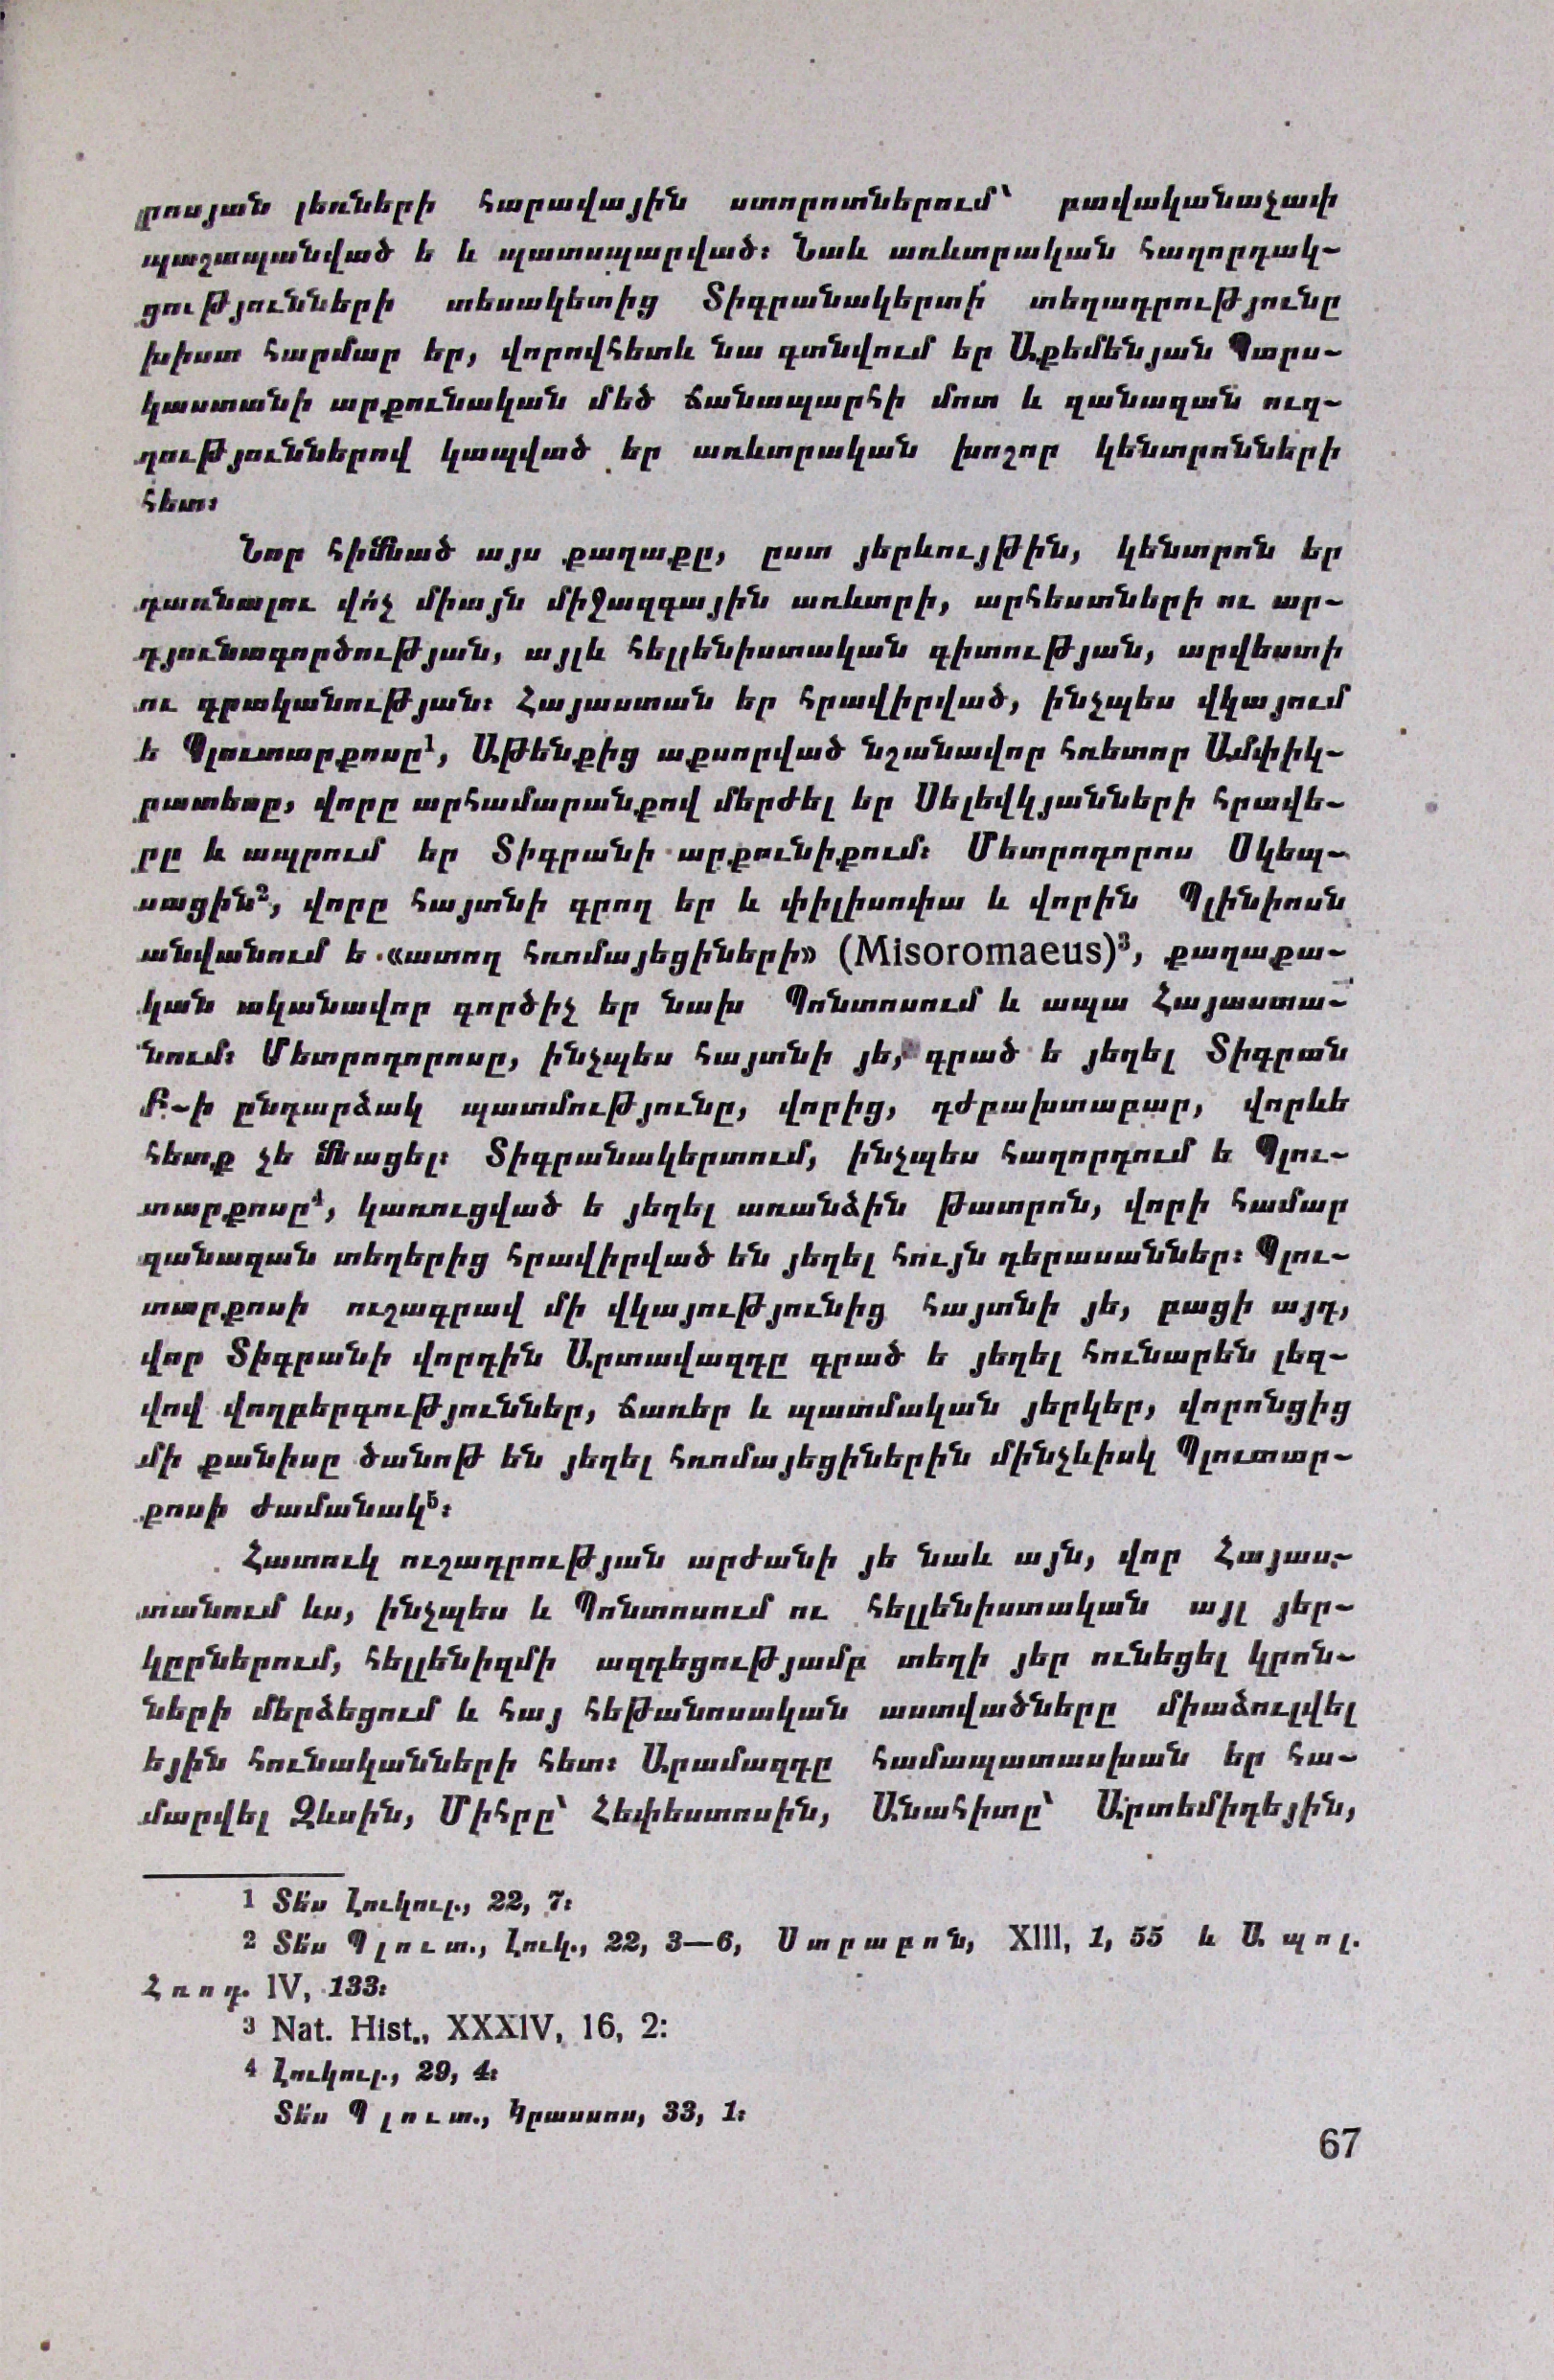 րոսյան լեռների հարավային ստորոտներում՝ բավականաչափ
պաշտպանված ե և պատսպարված։ Նաև առևտրական հաղորդակ-
ցությունների տեսակետից Տիգրանակերտի տեղադրությունը
խիստ հարմար եր, վորովհետև նա գտնվում եր Աքեմենյան Պարս-
կաստանի արքունական մեծ ճանապարհի մոտ և զանազան ուղ-
ղություններով կապված եր առևտրական խոշոր կենտրոնների
հետ։
Նոր հիմնած այս քաղաքը, ըստ յերևույթին, կենտրոն եր
դառնալու վո՛չ միայն միջազգային առևտրի, արհեստների ու ար-
դյունագործության, այլև հելլենիստական գիտության, արվեստի
ու գրականության։ Հայաստան եր հրավիրված, ինչպես վկայում
ե Պլուտարքոսը¹, Աթենքից աքսորված նշանավոր հռետոր Ամփիկ-
րատեսը, վորը արհամարանքով մերժել եր Սելևկյանների հրավե-
րը և ապրում եր Տիգրանի արքունիքում։ Մետրոդորոս Սկեպ-
սացին², վորը հայտնի գրող եր և փիլիսոփա և վորին Պլինիոսն
անվանում ե «ատող հռոմայեցիների» (Misoromaeus)³, քաղաքա-
կան ականավոր գործիչ եր նախ Պոնտոսում և ապա Հայաստա-
նում։ Մետրոդորոսը, ինչպես հայտնի յե, գրած ե յեղել Տիգրան
Բ.-ի ընդարձակ պատմությունը, վորից, դժբախտաբար, վորևե
հետք չե մնացել։ Տիգրանակերտում, ինչպես հաղորդում ե Պլու-
տարքոսը⁴, կառուցված ե յեղել առանձին թատրոն, վորի համար
զանազան տեղերից հրավիրված են յեղել հույն դերասաններ։ Պլու-
տարքոսի ուշագրավ մի վկայությունից հայտնի յե, բացի այդ,
վոր Տիգրանի վորդին Արտավազդը գրած ե յեղել հունարեն լեզ-
վով վողբերգություններ, ճառեր և պատմական յերկեր, վորոնցից
մի քանիսը ծանոթ են յեղել հռոմայեցիներին մինչևիսկ Պլուտար-
քոսի ժամանակ⁵։
Հատուկ ուշադրության արժանի յե նաև այն, վոր Հայաս-
տանում ևս, ինչպես և Պոնտոսում ու հելլենիստական այլ յեր-
կըրներում, հելլենիզմի ազդեցությամբ տեղի յեր ունեցել կրոն-
ների մերձեցում և հայ հեթանոսական աստվածները միաձուլվել
եյին հունականների հետ։ Արամազդը համապատասխան եր հա-
մարվել Զևսին, Միհրը՝ Հեփեստոսին, Անահիտը՝ Արտեմիդեյին,
1 Տե՛ս Լուկուլ., 22, 7։
2 Տե՛ս Պլուտ., Լուկ., 22, 3—6, Ստրաբոն, XIII, 1, 55 և Ապոլ.
Հռոդ. IV, 133։
3 Nat. Hist., XXXIV, 16, 2:
4 Լուկուլ., 29, 4։
Տե՛ս Պլուտ., Կրասսոս, 33, 1։
67